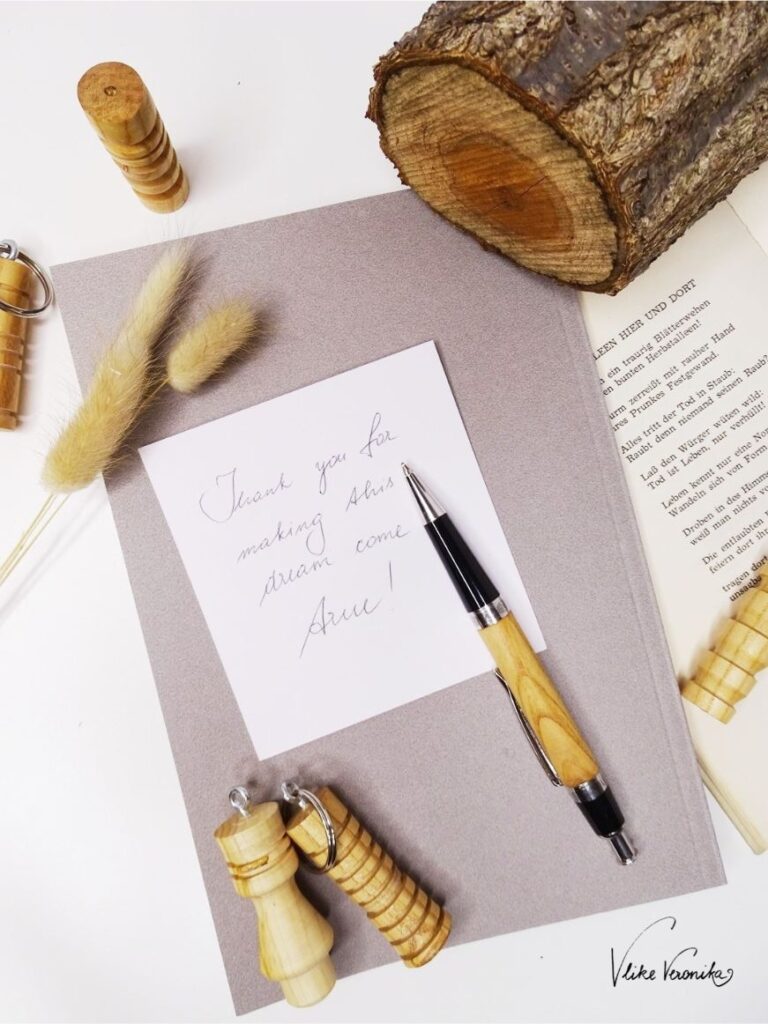 Thank you for
making this
dream come
true!
LEEN HIER UND DORT
ein traurig Blätterwehen
en bunten Herbstalleen!
urm zerreißt mit rauher Hand
res Prunkes Festgewand.
Alles tritt der Tod in Staub:
Raubt denn niemand seinen Raub?
Laß den Würger wüten wild:
Tod ist Leben, nur verhüllt!
Leben kennt nur eine Nor
Wandeln sich von Form
Droben in des Himme
weiß man nichts vo
Die entlaubten
feiern dort ihr
tragen dort
unsagba
V like Veronika